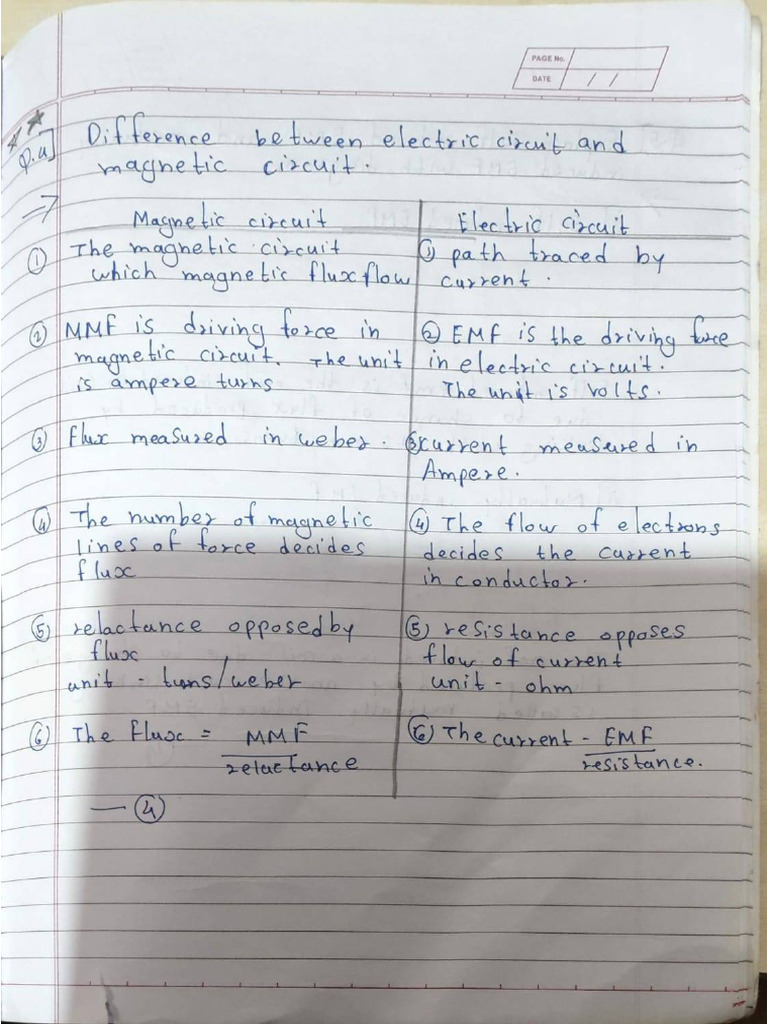 PAGE No.
DATE / /
Q.4] Difference between electric circuit and
magnetic circuit.
⇒ Magnetic circuit
① The magnetic circuit
which magnetic flux flow
② MMF is driving force in
magnetic circuit. The unit
is ampere turns
③ flux measured in weber.
④ The number of magnetic
lines of force decides
flux
⑤ relactance opposed by
flux
unit - turns/weber
⑥ The flux = MMF
relactance
— ④
Electric circuit
① path traced by
current.
② EMF is the driving force
in electric circuit.
The unit is volts.
③ current measured in
Ampere.
④ The flow of electrons
decides the current
in conductor.
⑤ resistance opposes
flow of current
unit - ohm
⑥ The current - EMF
resistance.